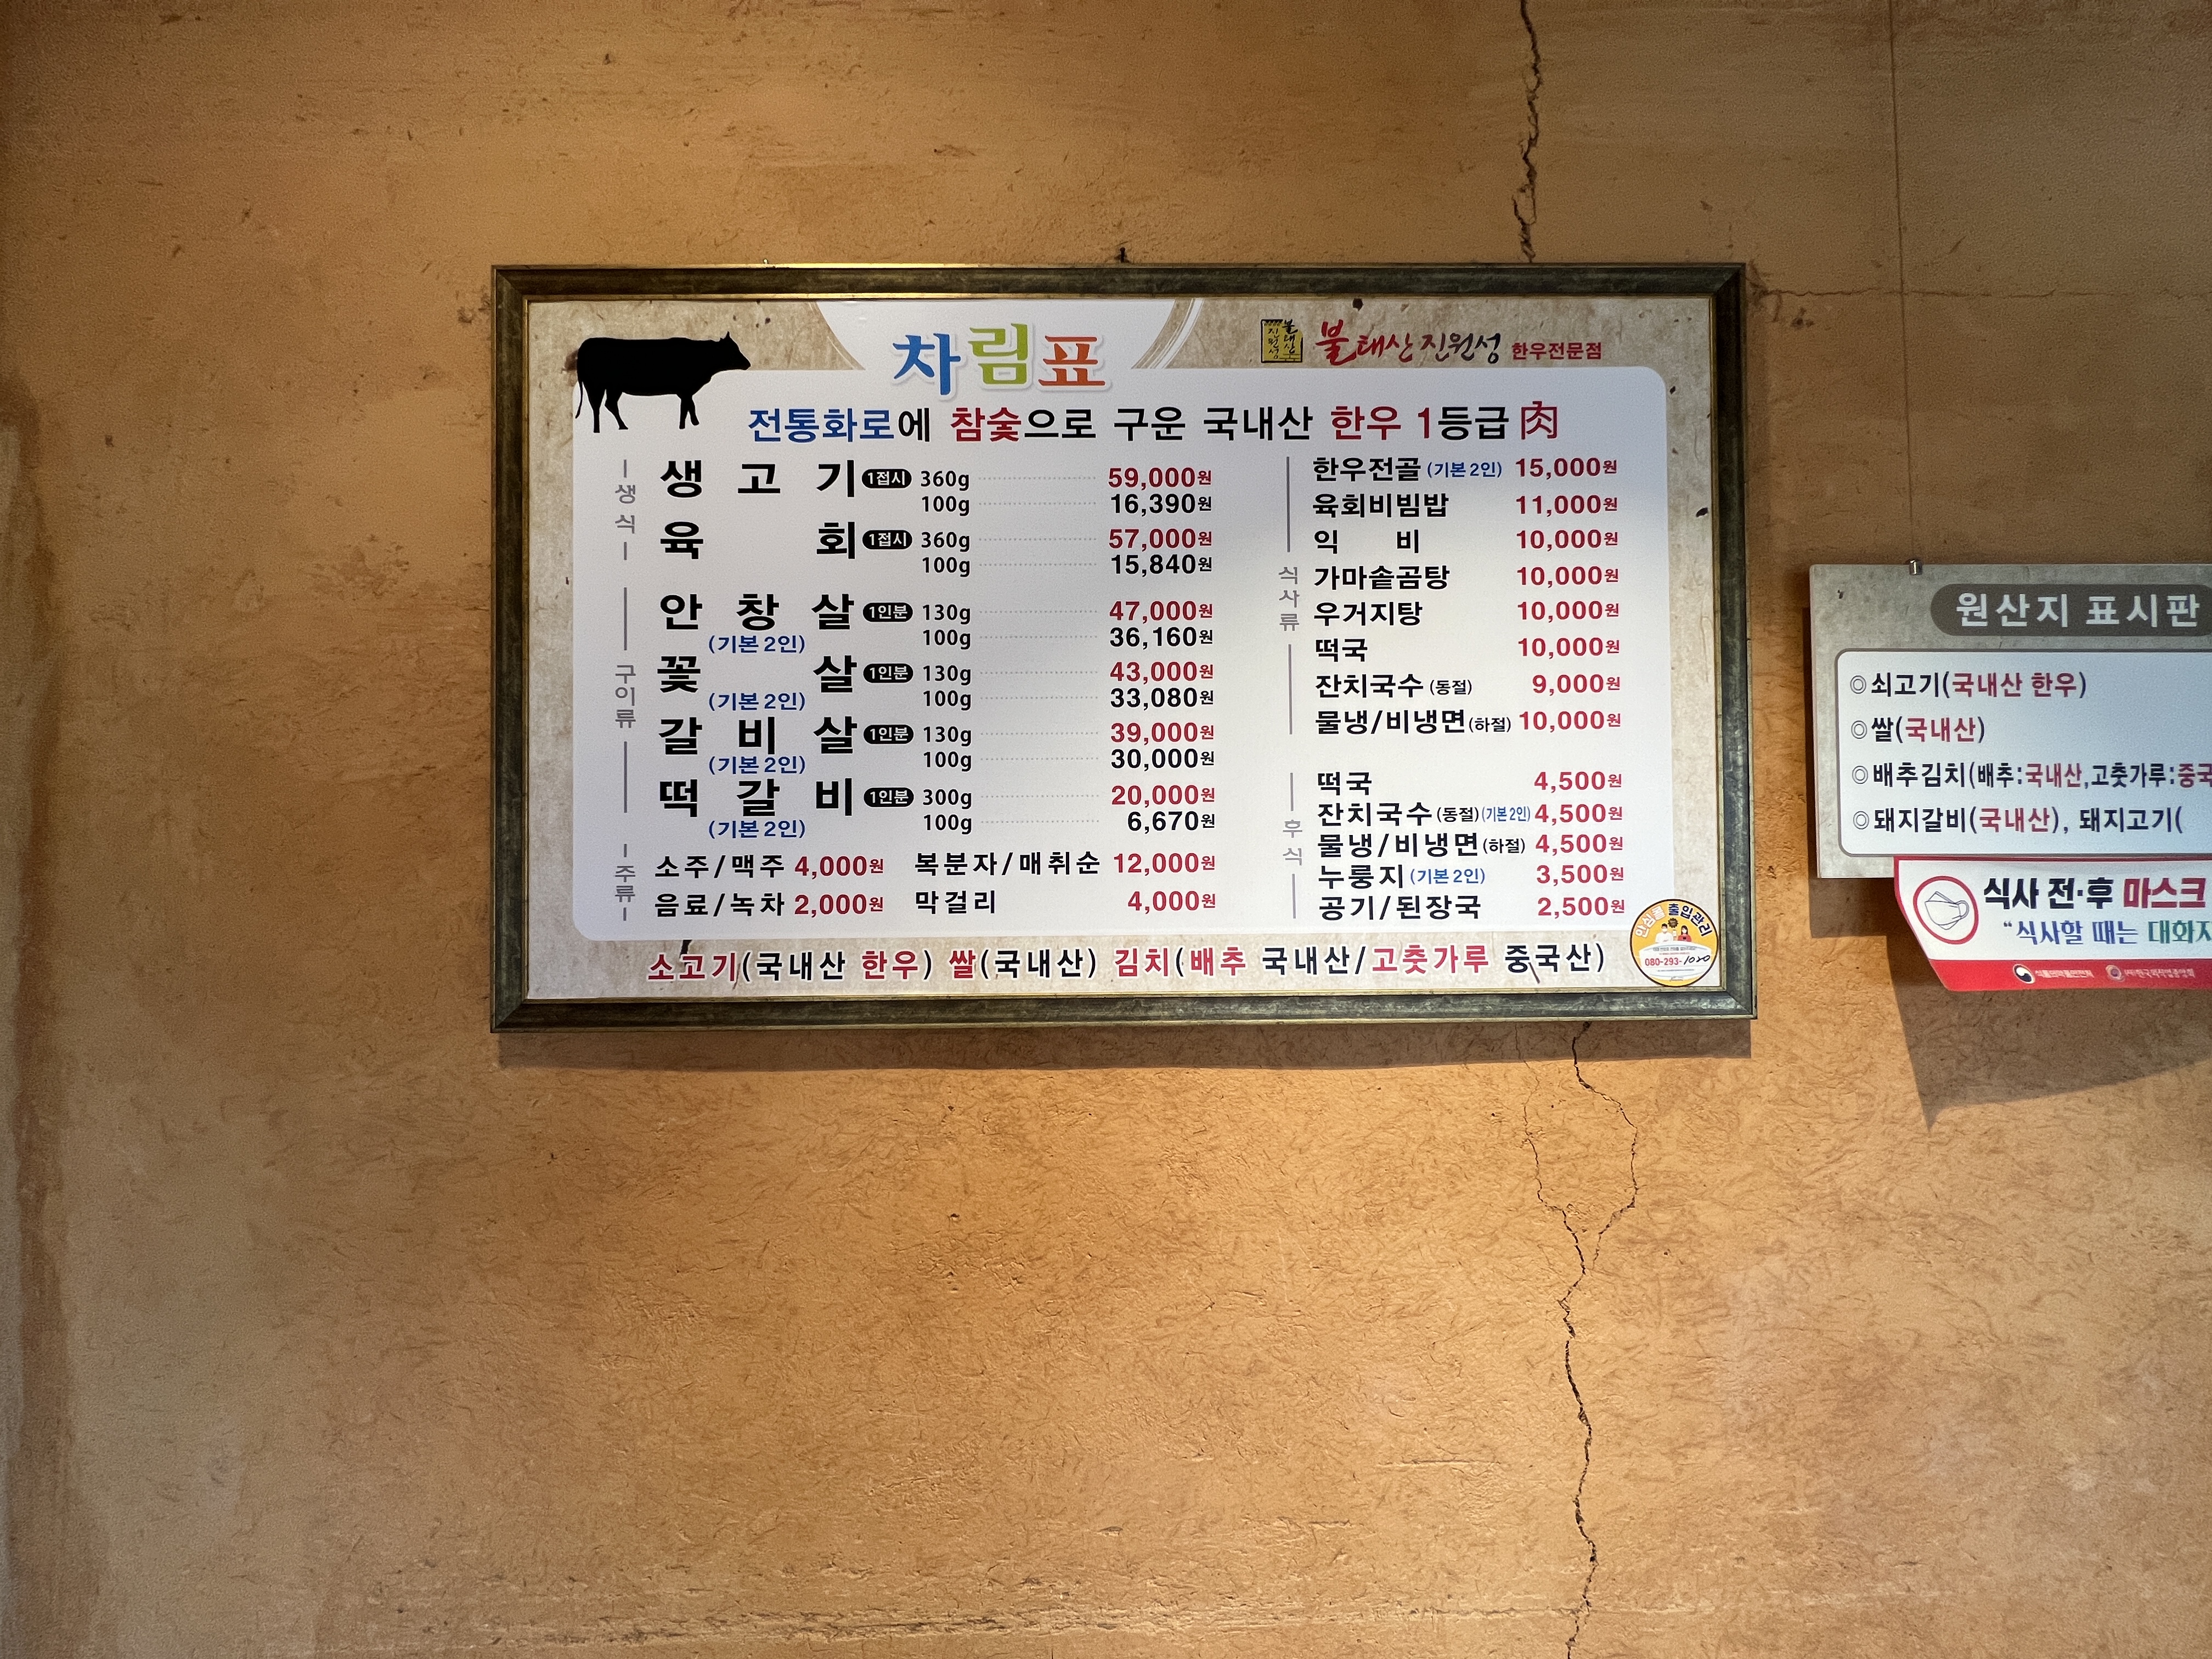 차림표
불태산진원성 한우전문점
전통화로에 참숯으로 구운 국내산 한우 1등급 肉
생식
생고기 1접시 360g 59,000원
100g 16,390원
육회 1접시 360g 57,000원
100g 15,840원
구이류
안창살 1인분 130g 47,000원
(기본 2인) 100g 36,160원
꽃살 1인분 130g 43,000원
(기본 2인) 100g 33,080원
갈비살 1인분 130g 39,000원
(기본 2인) 100g 30,000원
떡갈비 1인분 300g 20,000원
(기본 2인) 100g 6,670원
주류
소주/맥주 4,000원 복분자/매취순 12,000원
음료/녹차 2,000원 막걸리 4,000원
식사류
한우전골 (기본 2인) 15,000원
육회비빔밥 11,000원
익비 10,000원
가마솥곰탕 10,000원
우거지탕 10,000원
떡국 10,000원
잔치국수 (동절) 9,000원
물냉/비냉면(하절) 10,000원
후식
떡국 4,500원
잔치국수 (동절) (기본 2인) 4,500원
물냉/비냉면 (하절) 4,500원
누룽지 (기본 2인) 3,500원
공기/된장국 2,500원
소고기(국내산 한우) 쌀(국내산) 김치(배추 국내산/고춧가루 중국산)
안심콜 출입관리
080-293-1020
원산지 표시판
◎쇠고기(국내산 한우)
◎쌀(국내산)
◎배추김치(배추:국내산,고춧가루:중국
◎돼지갈비(국내산), 돼지고기(
식사 전·후 마스크
“식사할 때는 대화자